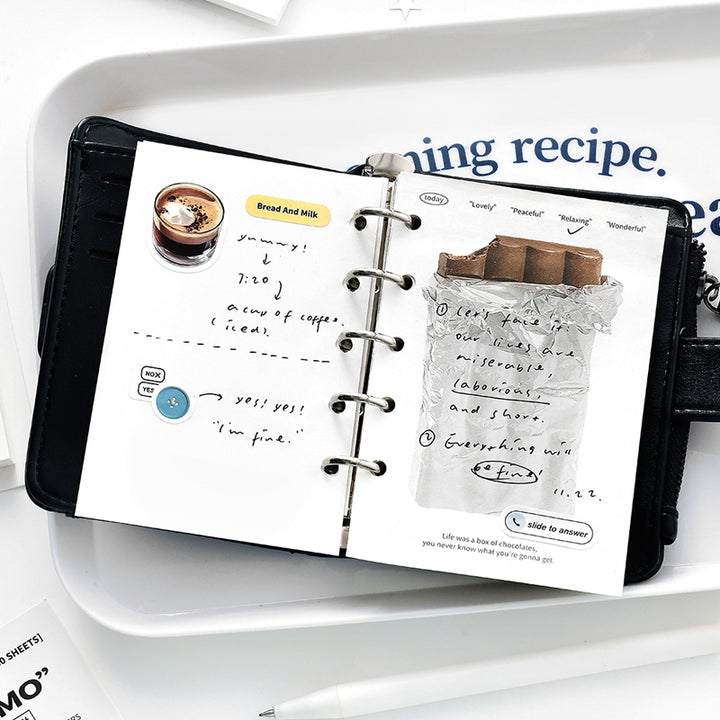 ning recipe.
ea
Bread And Milk
yummy!
↓
7:20
a cup of coffee.
(iced).
NO X
YES
→ yes! yes!
"I'm fine."
today
"Lovely"
"Peaceful"
"Relaxing"
"Wonderful"
① Let's face it
our lives are
miserable,
laborious,
and short.
② Everything will
be fine!
11.22.
slide to answer
Life was a box of chocolates,
you never know what you're gonna get.
0 SHEETS]
MO"